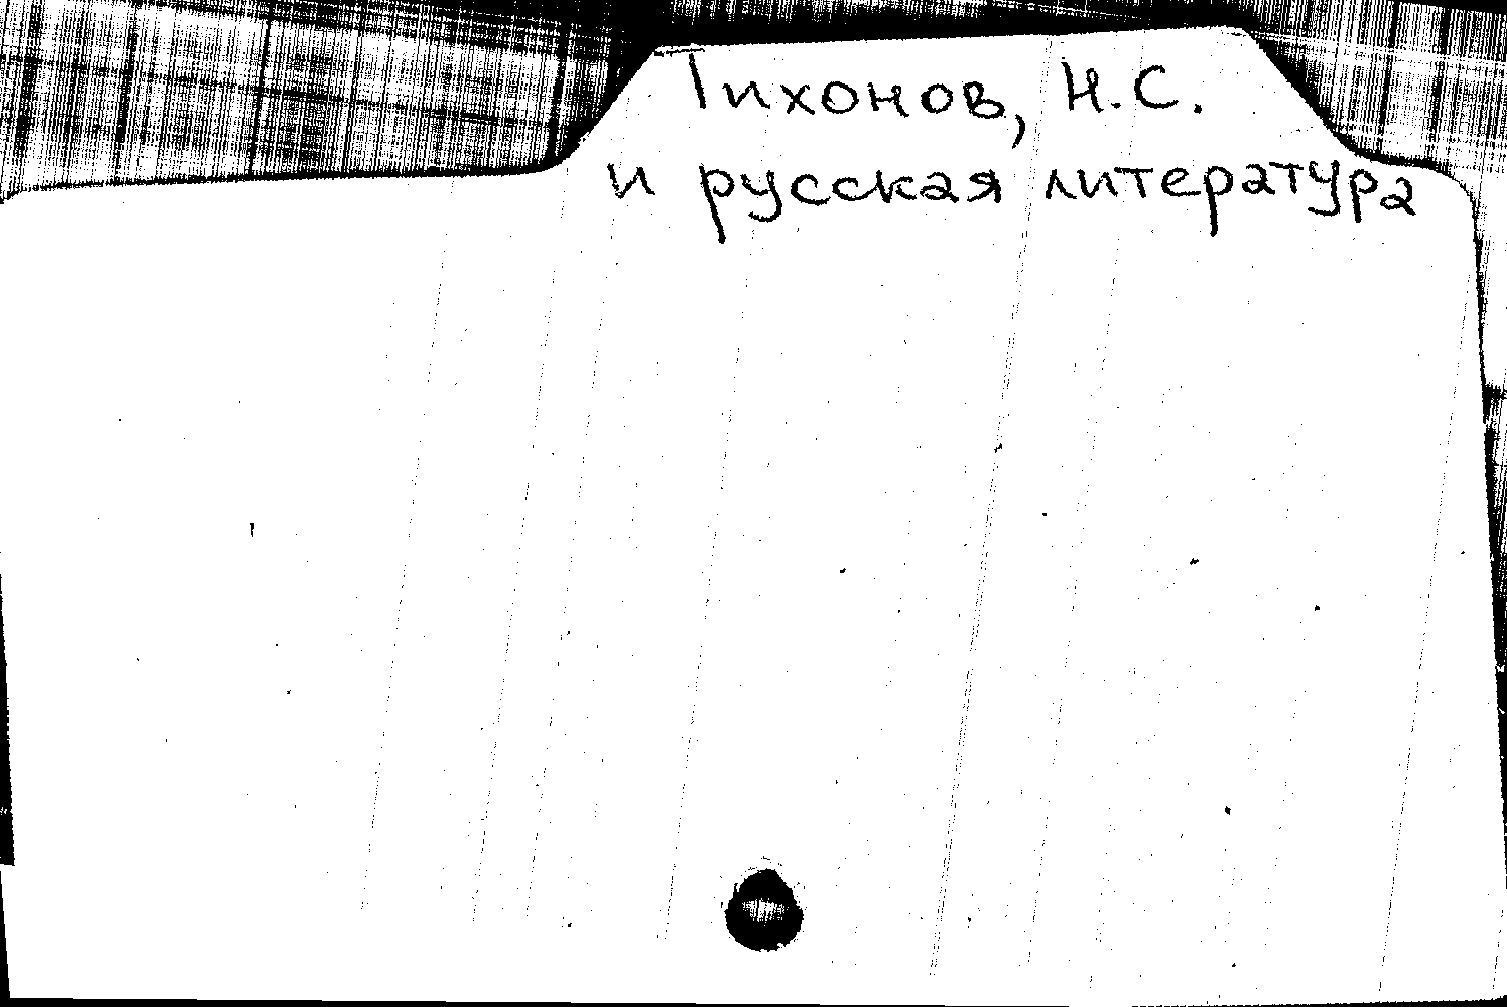 Тихонов, Н.С.
и русская литература